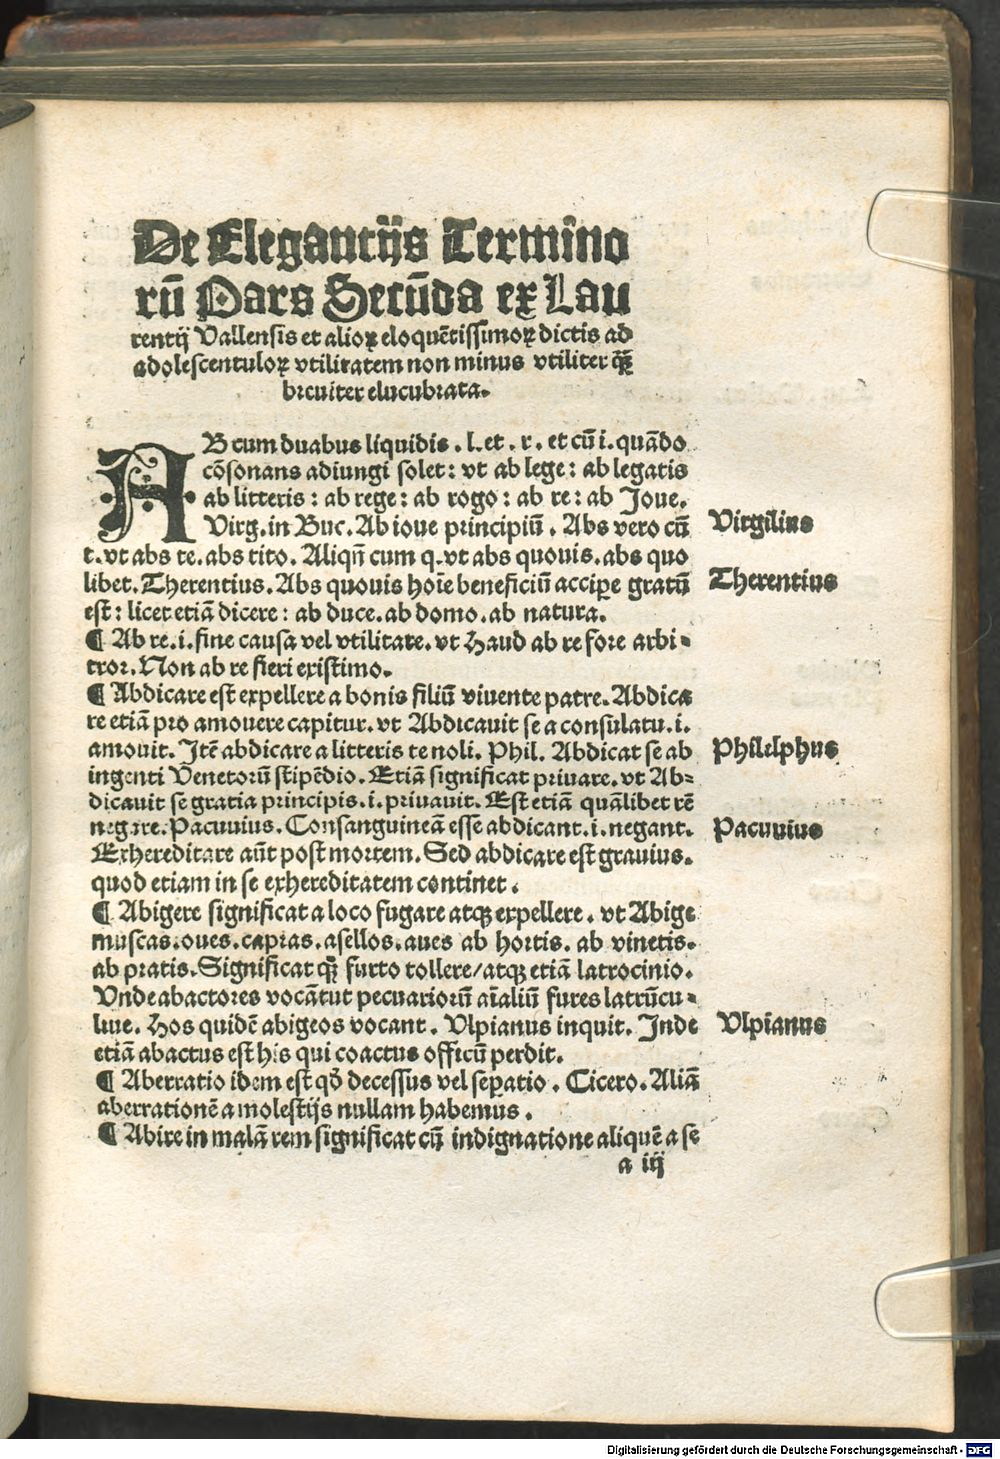 De Elegantijs Termino
rū Pars Secūda ex Lau
rentij Vallensis et alioꝝ eloquētissimoꝝ dictis ad
adolescentuloꝝ vtilitatem non minus vtiliter q̄ꝫ
breuiter elucubrata.
AB cum duabus liquidis . l. et . r. et cū i. quādo
cōsonans adiungi solet: vt ab lege: ab legatis
ab litteris: ab rege: ab rogo: ab re: ab Joue.
Virg. in Buc. Ab ioue principiū . Abs vero cū
Virgilius
t. vt abs te. abs tito. Aliqn̄ cum q. vt abs quouis. abs quo
libet. Therentius. Abs quouis hoīe beneficiū accipe gratū
Therentius
est: licet etiā dicere: ab duce. ab domo. ab natura.
¶ Ab re .i. sine causa vel vtilitate. vt Haud ab re fore arbi-
tror. Non ab re fieri existimo.
¶ Abdicare est expellere a bonis filiū viuente patre. Abdica
re etiā pro amouere capitur. vt Abdicauit se a consulatu .i.
amouit. Jtē abdicare a litteris te noli. Phil. Abdicat se ab
Philelphus
ingenti Venetorū stipēdio. Etiā significat priuare. vt Ab-
dicauit se gratia principis .i. priuauit. Est etiā quālibet rē
negare. Pacuuius. Consanguineā esse abdicant .i. negant.
Pacuuius
Exhereditare aūt post mortem. Sed abdicare est grauius.
quod etiam in se exhereditatem continet.
¶ Abigere significat a loco fugare atqꝫ expellere. vt Abige
muscas. oues. capras. asellos. aues ab hortis. ab vinetis.
ab pratis. Significat qꝫ furto tollere/ atqꝫ etiā latrocinio.
Vnde abactores vocātut pecuariorū aīaliū fures latrūcu-
liue. Hos quidē abigeos vocant. Vlpianus inquit. Jnde
Vlpianus
etiā abactus est his qui coactus officū perdit.
¶ Aberratio idem est qđ decessus vel sepatio . Cicero. Aliā
aberrationē a molestijs nullam habemus.
¶ Abire in malā rem significat cū indignatione aliquē a se
a iij
Digitalisierung gefördert durch die Deutsche Forschungsgemeinschaft - DFG